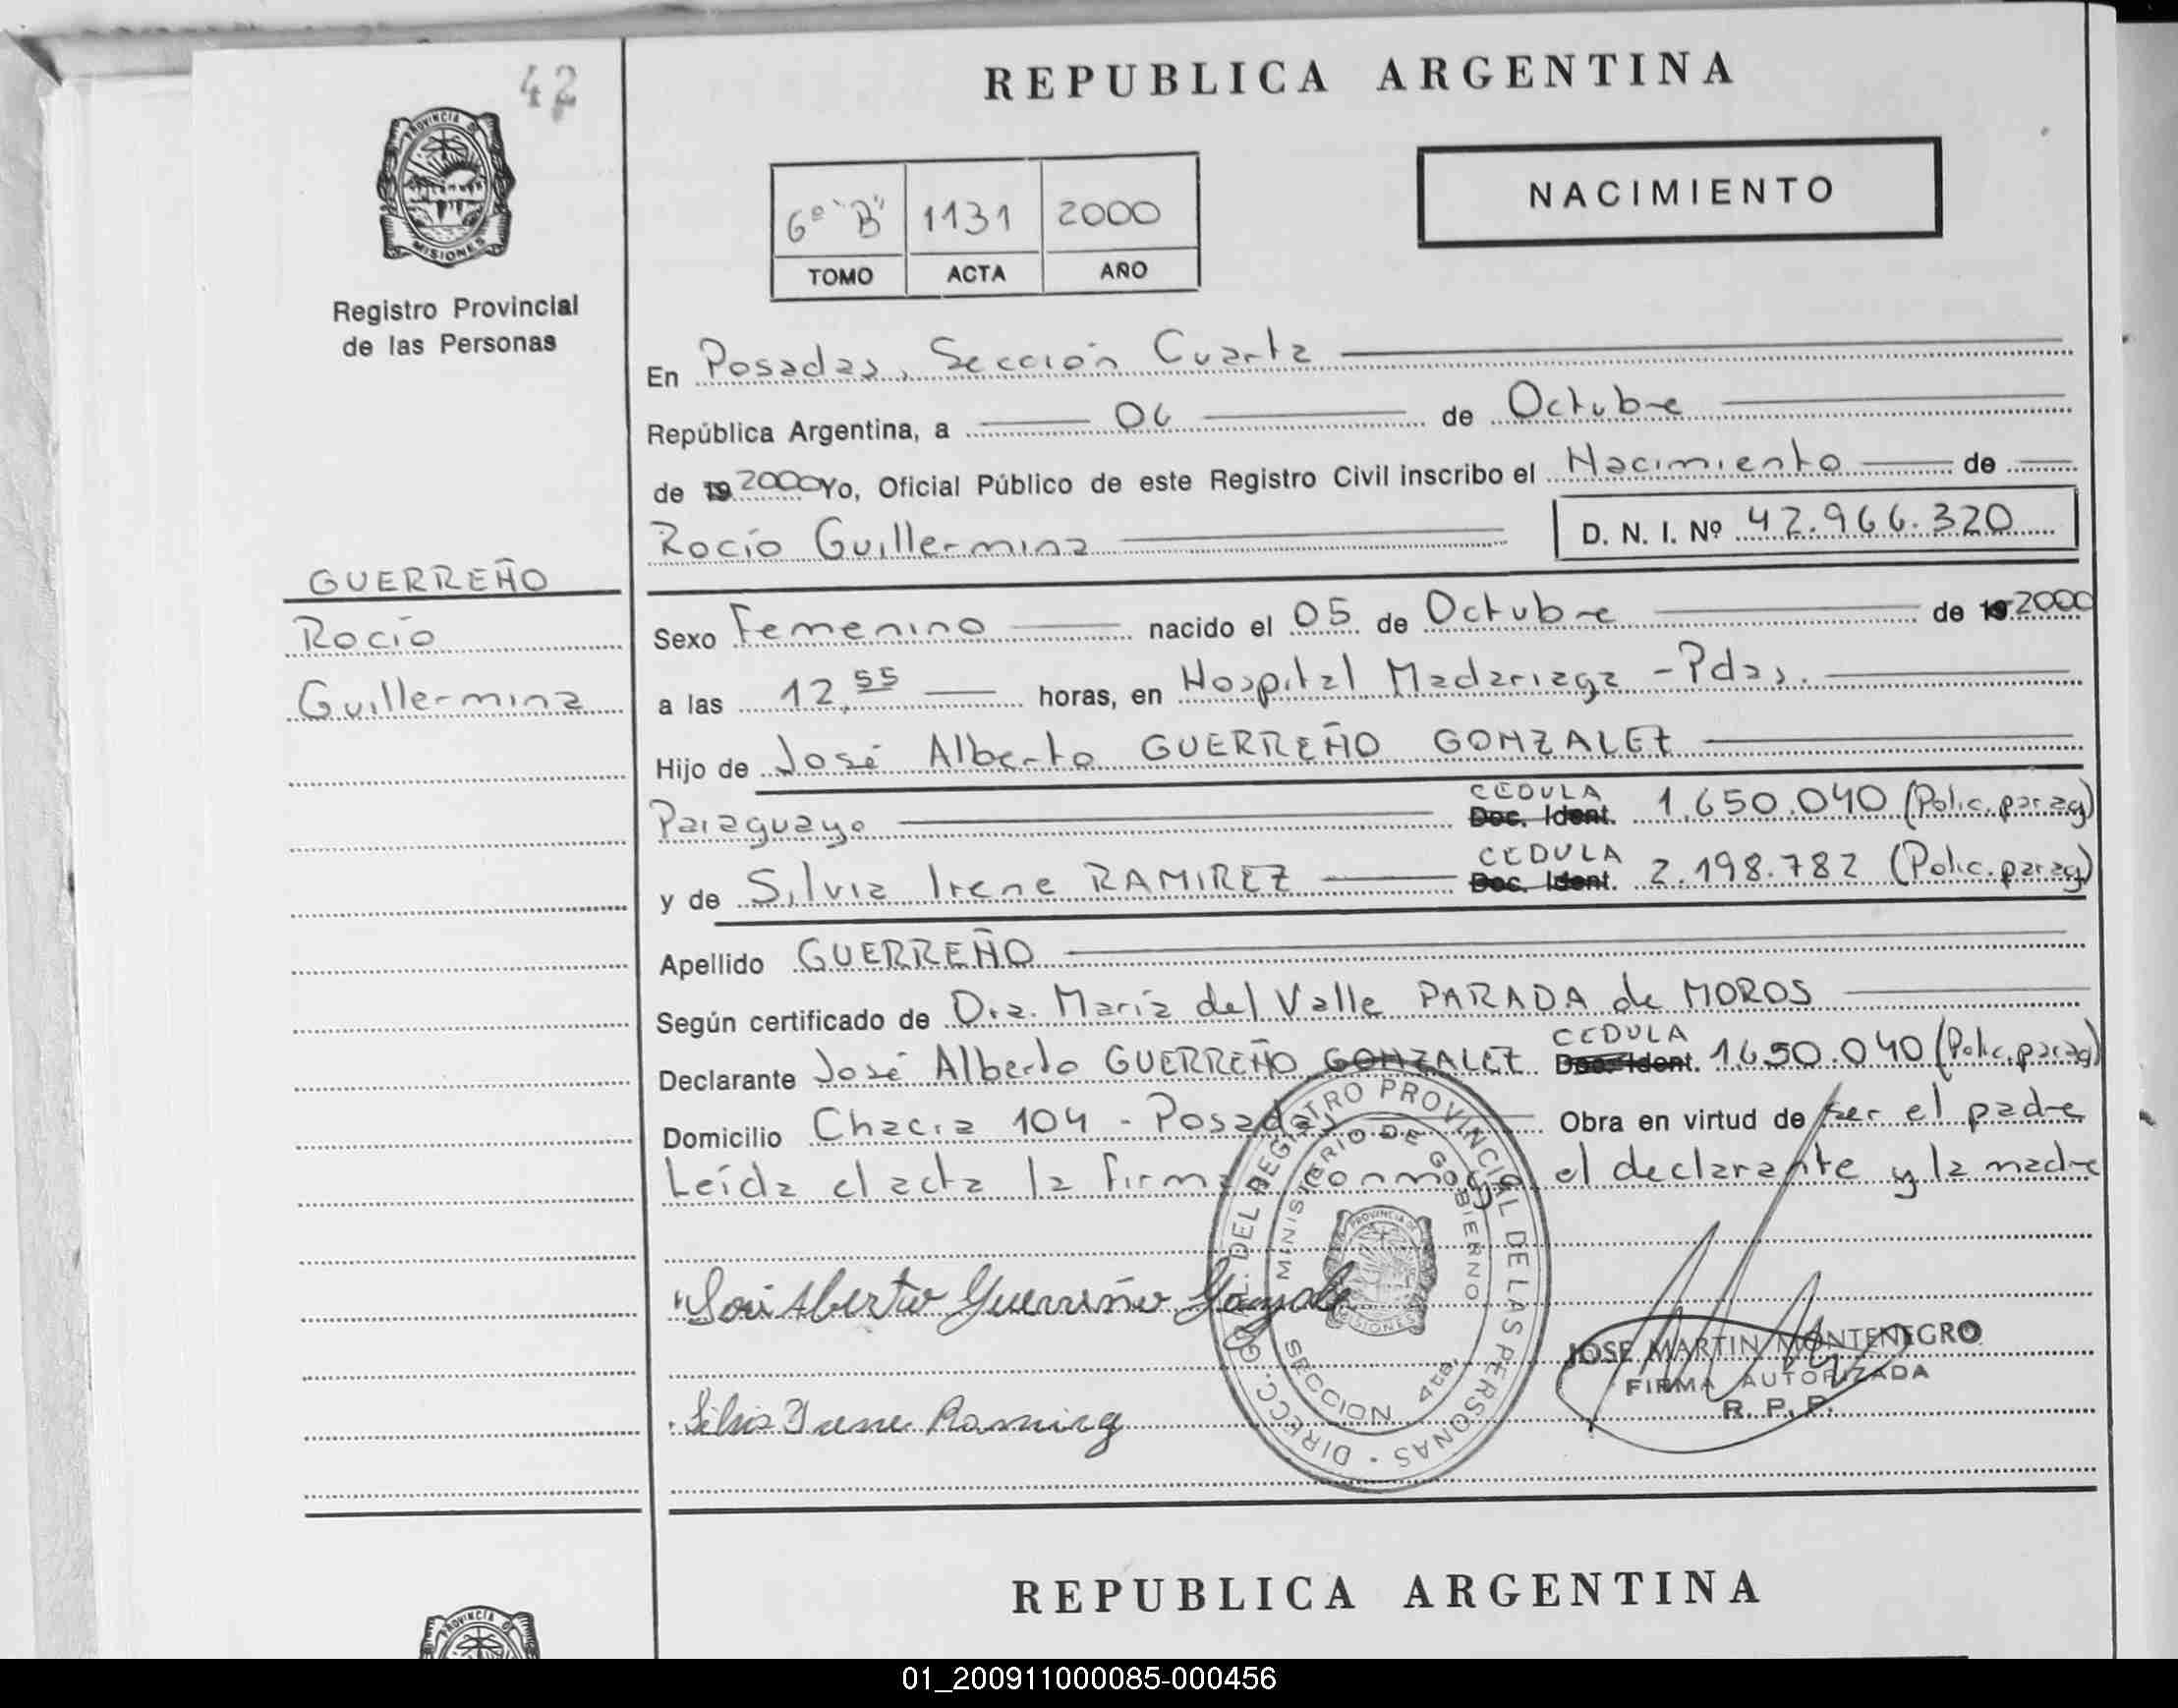 42
REPUBLICA ARGENTINA
PROVINCIA DE
MISIONES
Registro Provincial
de las Personas
6º "B" 1131 2000
TOMO ACTA AÑO
NACIMIENTO
En Posadas, Sección Cuarta
República Argentina, a 06 de Octubre
de 19 2000 Yo, Oficial Público de este Registro Civil inscribo el Nacimiento de
Rocío Guillermina D. N. I. Nº 42.966.320
GUERREÑO
Rocío
Guillermina
Sexo Femenino nacido el 05 de Octubre de 19 2000
a las 12,55 horas, en Hospital Madariaga - Pdas.
Hijo de José Alberto GUERREÑO GONZALEZ
Paraguayo CEDULA Doc. Ident. 1.650.040 (Polic. parag)
y de Silvia Irene RAMIREZ CEDULA Doc. Ident. 2.198.782 (Polic. parag)
Apellido GUERREÑO
Según certificado de Dra. María del Valle PARADA de MOROS
Declarante José Alberto GUERREÑO GONZALEZ CEDULA Doc. Ident. 1.650.040 (Polic. parag)
Domicilio Chacra 104 - Posadas Obra en virtud de ser el padre
Leída el acta la firma conmigo el declarante y la madre
José Alberto Guerreño Gonzalez
Silvia Irene Ramirez
DIRECC. GRAL. DEL REGISTRO PROVINCIAL DE LAS PERSONAS
MINISTERIO DE GOBIERNO
PROVINCIA DE
MISIONES
SECCION 4ta.
JOSE MARTIN MONTENEGRO
FIRMA AUTORIZADA
R. P. P.
REPUBLICA ARGENTINA
PROVINCIA DE
01_200911000085-000456